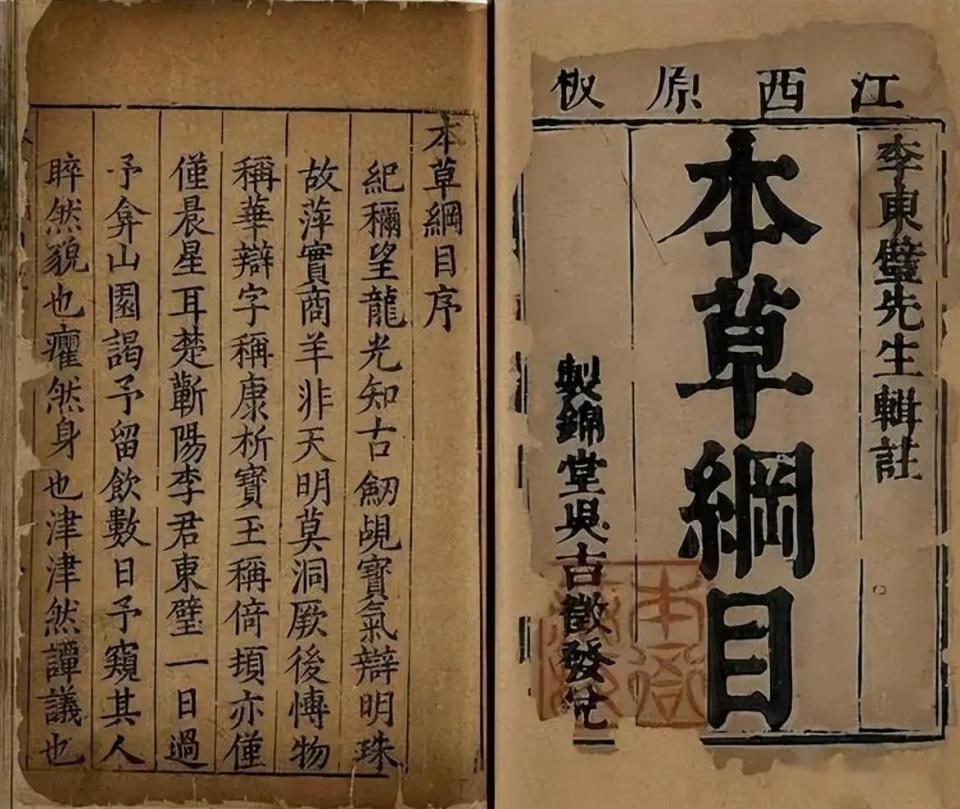 江西原板
李東璧先生輯註
本草綱目
製錦堂吳古徵發兌
本草綱目序
紀稱望龍光知古劒覘寶氣辯明珠
故萍實商羊非天明莫洞厥後博物
稱華辯字稱康析寶玉稱倚頓亦僅
僅晨星耳楚蘄陽李君東璧一日過
予弇山園謁予留飲數日予窺其人
睟然貌也癯然身也津津然譚議也